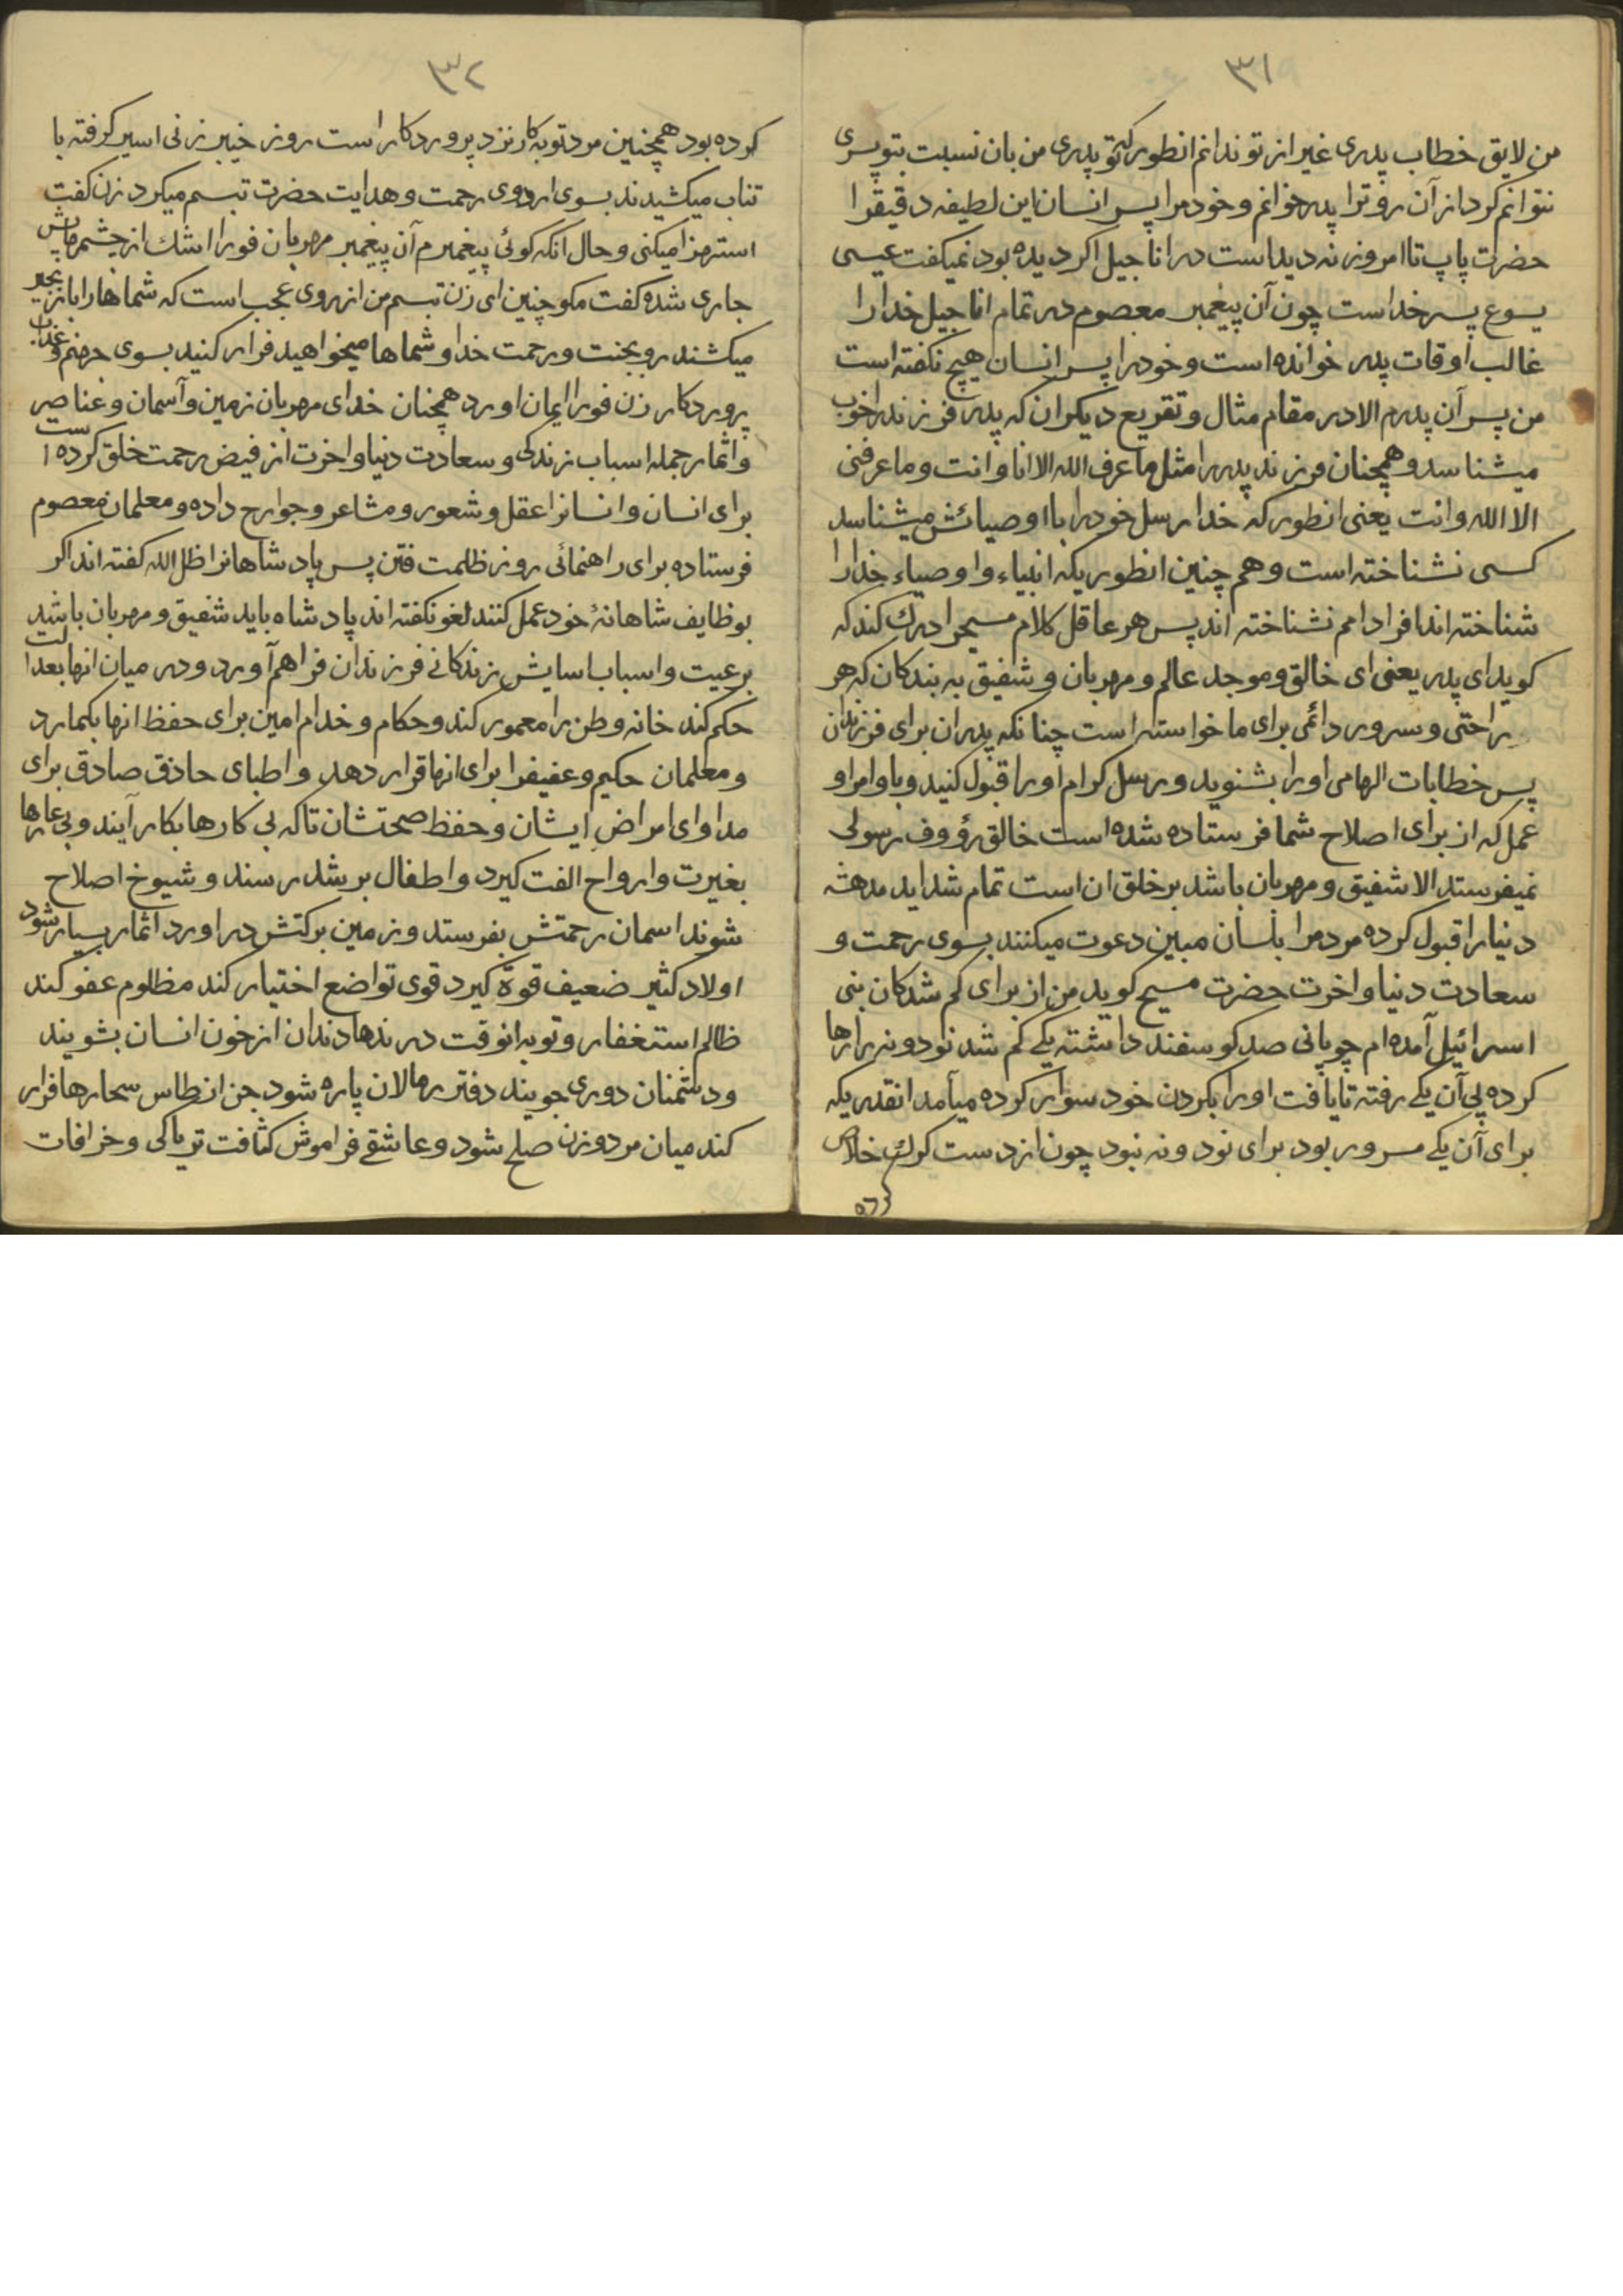 ۳۱
من لایق خطاب پدری غیر از تو ندانم انطور که تو پدری من بان نسبت بتو پسری
نتوانم کرد از آن رو ترا پدر خوانم و خود مرا پسر انسان این لطیفه دقیقرا
حضرت پاپ تا امروز نه دیداست در اناجیل اکر دیده بود نمیکفت عیسی
یسوع پسر خداست چون آن پیغمبر معصوم در تمام اناجیل خدا را
غالب اوقات پدر خوانده است و خود را پسر انسان هیچ نکفته است
من پسر آن پدرم الا در مقام مثال و تقریع دیکران که پدر فرزند را خوب
میشناسد و همچنان فرزند پدر را مثل ما عرف الله الا انا و انت و ما عرفنی
الا الله و انت یعنی انطور که خدا رسل خود را با اوصیائش میشناسد
کسی نشناخته است و هم چنین انطوریکه انبیاء و اوصیاء خدا را
شناخته اند افراد امم نشناخته اند پس هر عاقل کلام مسیحرا درك کند که
کوید ای پدر یعنی ای خالق و موجد عالم و مهربان و شفیق به بندکان که هر
راحتی و سرور دائمی برای ما خواسته است چنانکه پدران برای فرزندان
پس خطابات الهامی او را بشنوید و رسل کرام او را قبول کنید و باوامر او
عمل که از برای اصلاح شما فرستاده شده است خالق رؤوف رسولی
نمیفرستد الا شفیق و مهربان باشد بر خلق ان است تمام شداید مدهشه
دنیا را قبول کرده مردم را بلسان مبین دعوت میکنند بسوی رحمت و
سعادت دنیا و اخرت حضرت مسیح کوید من از برای کم شدکان بنی
اسرائیل آمده ام چوپانی صد کوسفند داشته یکی کم شد نود و نه را رها
کرده پی آن یکی رفته تا یافت او را بکردن خود سوار کرده میآمد انقدریکه
برای آن یکی مسرور بود برای نود و نه نبود چون از دست کرك خلاص
۳۲
کرده بود همچنین مرد توبه کار نزد پروردکار است روز خیبر زنی اسیر کرفته با
تناب میکشیدند بسوی اردوی رحمت و هدایت حضرت تبسم میکرد زن کفت
استهزا میکنی و حال انکه کوئی پیغمبرم آن پیغمبر مهربان فورا اشك از چشمهاش
جاری شده کفت مکو چنین ای زن تبسم من از روی عجب است که شماها را با زنجیر
میکشند رو بجنت و رحمت خدا و شماها میخواهید فرار کنید بسوی جهنم و عذاب
پروردکار زن فورا ایمان اورد همچنان خدای مهربان زمین و آسمان و عناصر
و اثمار جمله اسباب زندکی و سعادت دنیا و اخرت از فیض رحمت خلق کرده است
برای انسان و انسانرا عقل و شعور و مشاعر و جوارح داده و معلمان معصوم
فرستاده برای راهنمائی روز ظلمت فتن پس پادشاهانرا ظل الله کفته اند اکر
بوظایف شاهانهٔ خود عمل کنند لغو نکفته اند پادشاه باید شفیق و مهربان باشد
برعیت و اسباب اسایش زندکانی فرزندان فراهم آورد و در میان انها بعدالت
حکم کند خانه وطن را معمور کند و حکام و خدام امین برای حفظ انها بکمارد
و معلمان حکیم و عفیفرا برای انها قرار دهد و اطبای حاذق صادق برای
مداوای امراض ایشان و حفظ صحتشان تا که بی کارها بکار آیند و بی عارها
بغیرت و ارواح الفت کیرد و اطفال برشد رسند و شیوخ اصلاح
شوند اسمان رحمتش بفرستد و زمین برکتش در اورد اثمار بسیار شود
اولاد کثیر ضعیف قوة کیرد قوی تواضع اختیار کند مظلوم عفو کند
ظالم استغفار و توبه انوقت درندها دندان از خون انسان بشویند
و دشمنان دوری جویند دفتر رمالان پاره شود جن از طاس سحارها فرار
کند میان مرد و زن صلح شود و عاشقی فراموش کثافت تریاکی و خرافات